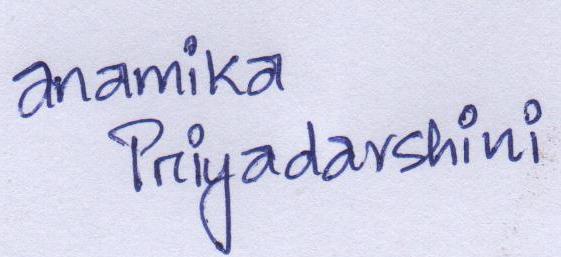 anamika
Priyadarshini